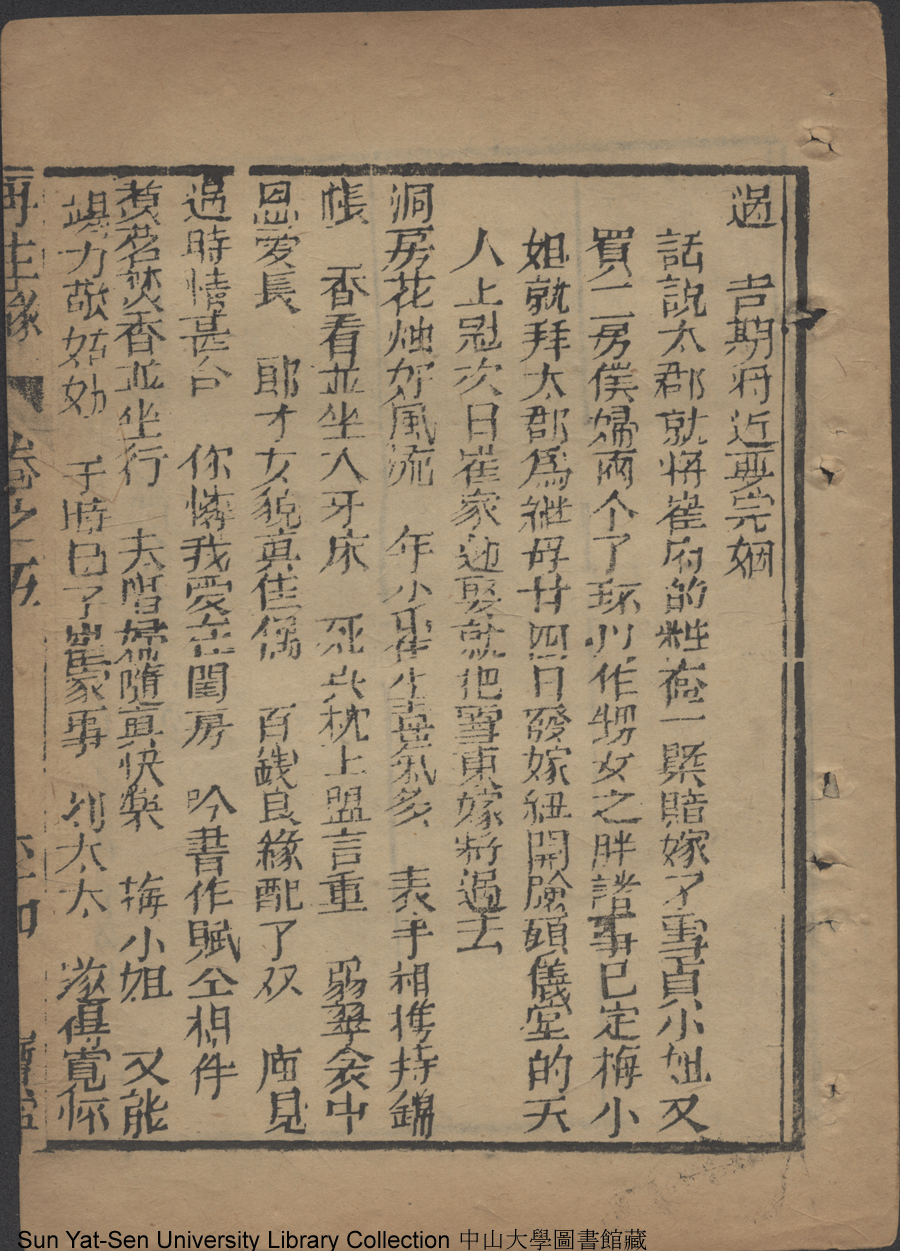 過　吉期将近要完姻
話說太郡就将崔府的粧奩一槩賠嫁了雪貞小姐又
買二房僕婦兩个了環以作甥女之胖諸事已定梅小
姐就拜太郡爲継母廿四日發嫁紐開臉頭儀堂的天
人上冠次日崔家迎娶就把雪東嫁將過去
洞房花烛好風流　年少崔生喜氣多　表手相携持錦
帳　香看並坐入牙床　死共枕上盟言重　翡翠衾中
恩愛長　郎才女貌真佳偶　百餞良緣配了双　庙見
過時情甚合　你憐我愛在閨房　吟書作賦仝相伴
煑茗焚香並坐行　夫唱婦隨真快樂　梅小姐　又能
竭力敬姑妳　于時日了崔家事　列太太　放得寛怀
再生緣　卷之五　寳堂
Sun Yat-Sen University Library Collection 中山大學圖書館藏